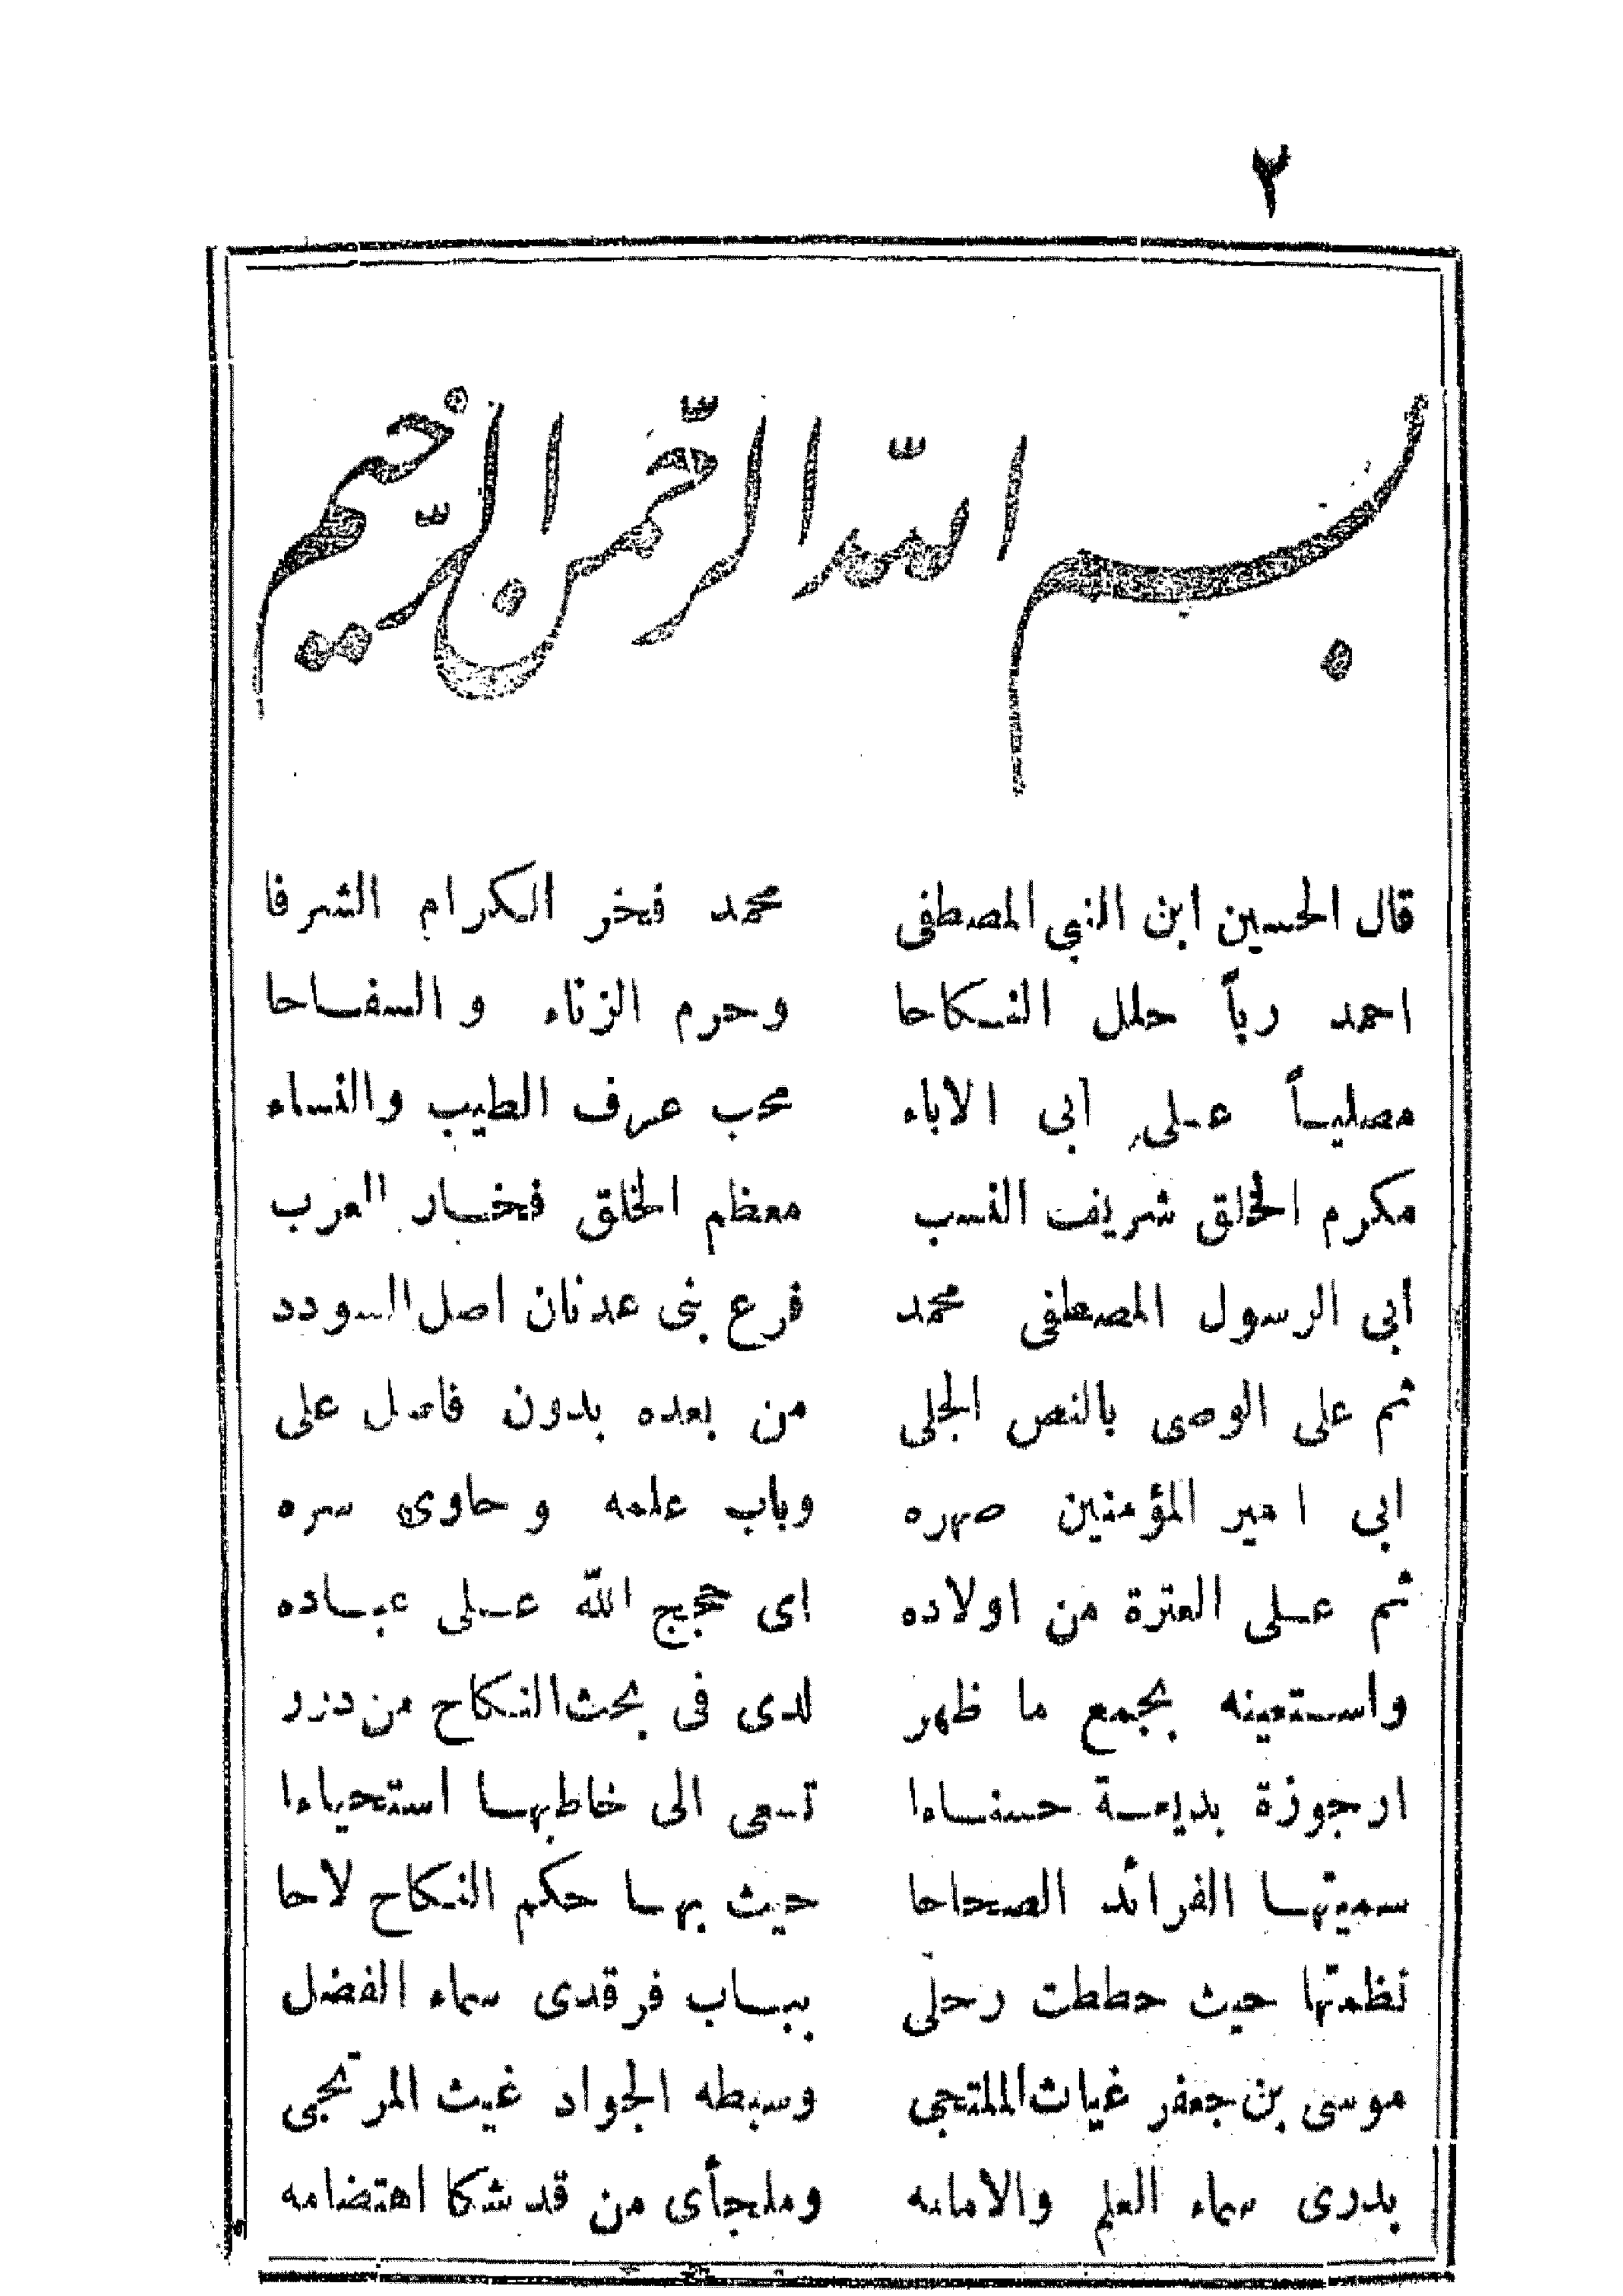 ٢
بسم الله الرّحمن الرّحيم
قال الحسين ابن النبي المصطفى محمد فخر الكرام الشرفا
احمد رباً حلل النكاحا وحرم الزناء والسفاحا
مصلياً على ابي الاباء محب عرف الطيب والنساء
مكرم الخلق شريف النسب معظم الخلق فخار العرب
أبي الرسول المصطفى محمد فرع بنى عدنان اصل السودد
ثم على الوصى بالنص الجلى من بعده بدون فاصل على
ابى امير المؤمنين صهره وباب علمه وحاوى سره
ثم على العترة من اولاده اى حجج الله على عباده
واستعينه بجمع ما ظهر لدى فى بحث النكاح من درر
ارجوزة بديعة حسناءا تسعى الى خاطبها استحياءا
سميتها الفرائد الصحاحا حيث بها حكم النكاح لاحا
نظمتها حيث حططت رحلى بباب فرقدى سماء الفضل
موسى بن جعفر غياث الملتجى وسبطه الجواد غيث المرتجى
بدرى سماء العلم والامامه وملجأى من قد شكا اهتضامه